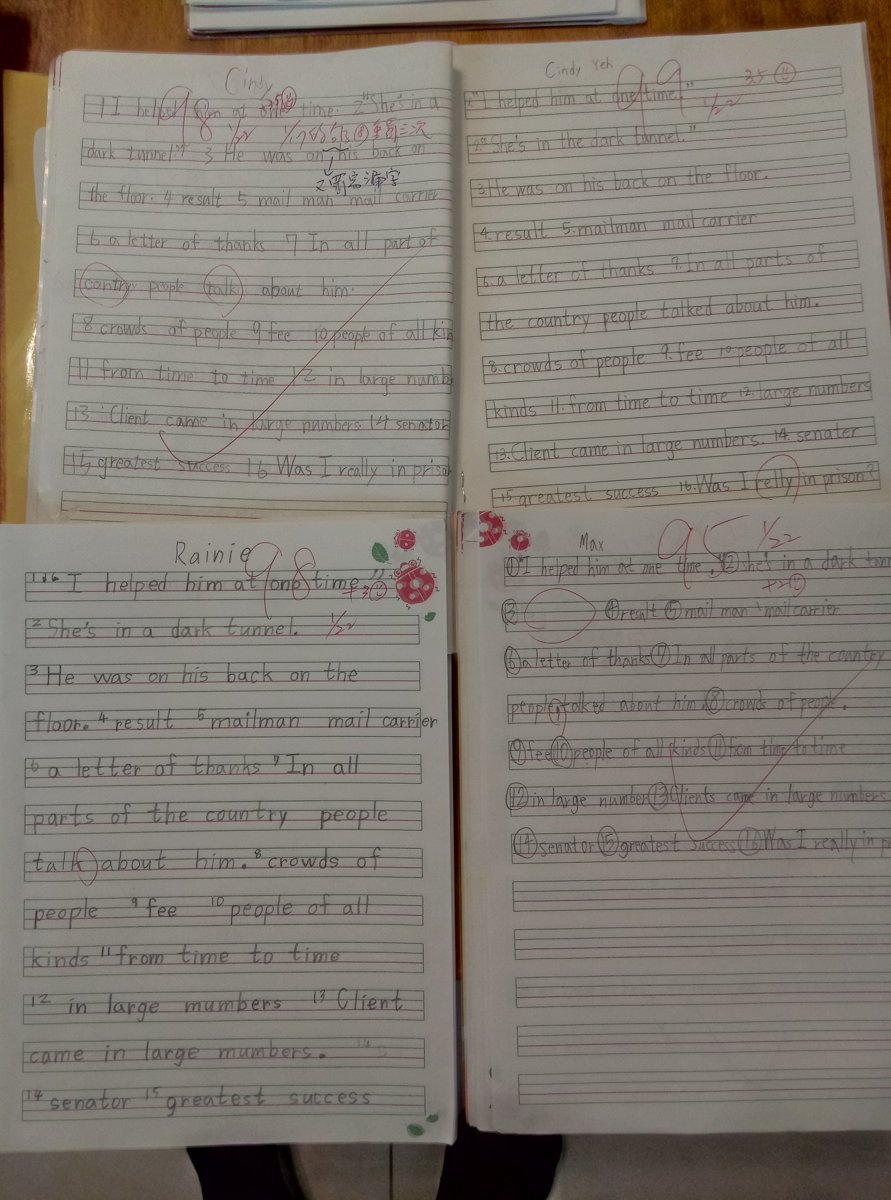 Cindy
98
1 I helped him at one time. 2 "She's in a
1/22
dark tunnel." 3 He was on his back on
the floor. 4 result 5 mail man mail carrier
6 a letter of thanks 7 In all part of
contry people talk about him.
8 crowds of people 9 fee 10 people of all kin
11 from time to time 12 in large numb
13 Client came in large numbers 14 senator
15 greatest success 16 Was I really in prison
Cindy Yeh
99
1."I helped him at one time."
1/22
2."She's in the dark tunnel."
3.He was on his back on the floor.
4.result 5.mailman mail carrier
6.a letter of thanks 7.In all parts of
the country people talked about him.
8.crowds of people 9.fee 10.people of all
kinds 11.from time to time 12.large numbers
13.Client came in large numbers. 14.senater
15.greatest success 16.Was I relly in prison?
Rainie
98
1 " I helped him at one time."
+3
2 She's in a dark tunnel. 1/22
3 He was on his back on the
floor. 4 result 5 mailman mail carrier
6 a letter of thanks 7 In all
parts of the country people
talk about him. 8 crowds of
people 9 fee 10 people of all
kinds 11 from time to time
12 in large mumbers 13 Client
came in large mumbers.
14 senator 15 greatest success
Max
95 1/22
① "I helped him at one time." ② she's in a dark tunn
+2
③ ④ result ⑤ mail man mail carrier
⑥ a letter of thanks ⑦ In all parts of the country
people talked about him. ⑧ crowds of people.
⑨ fee ⑩ people of all kinds ⑪ from time to time
⑫ in large number ⑬ Clients came in large numbers
⑭ senator ⑮ greatest success ⑯ Was I really in p